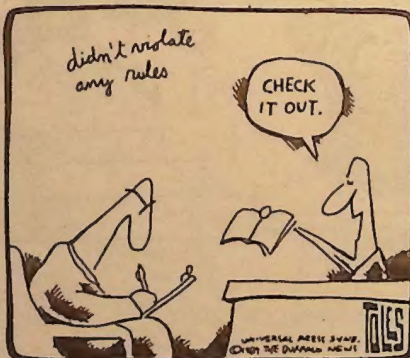 didn't violate
any rules
CHECK
IT OUT.
UNIVERSAL PRESS SYND.
©1989 THE BUFFALO NEWS
TOLES